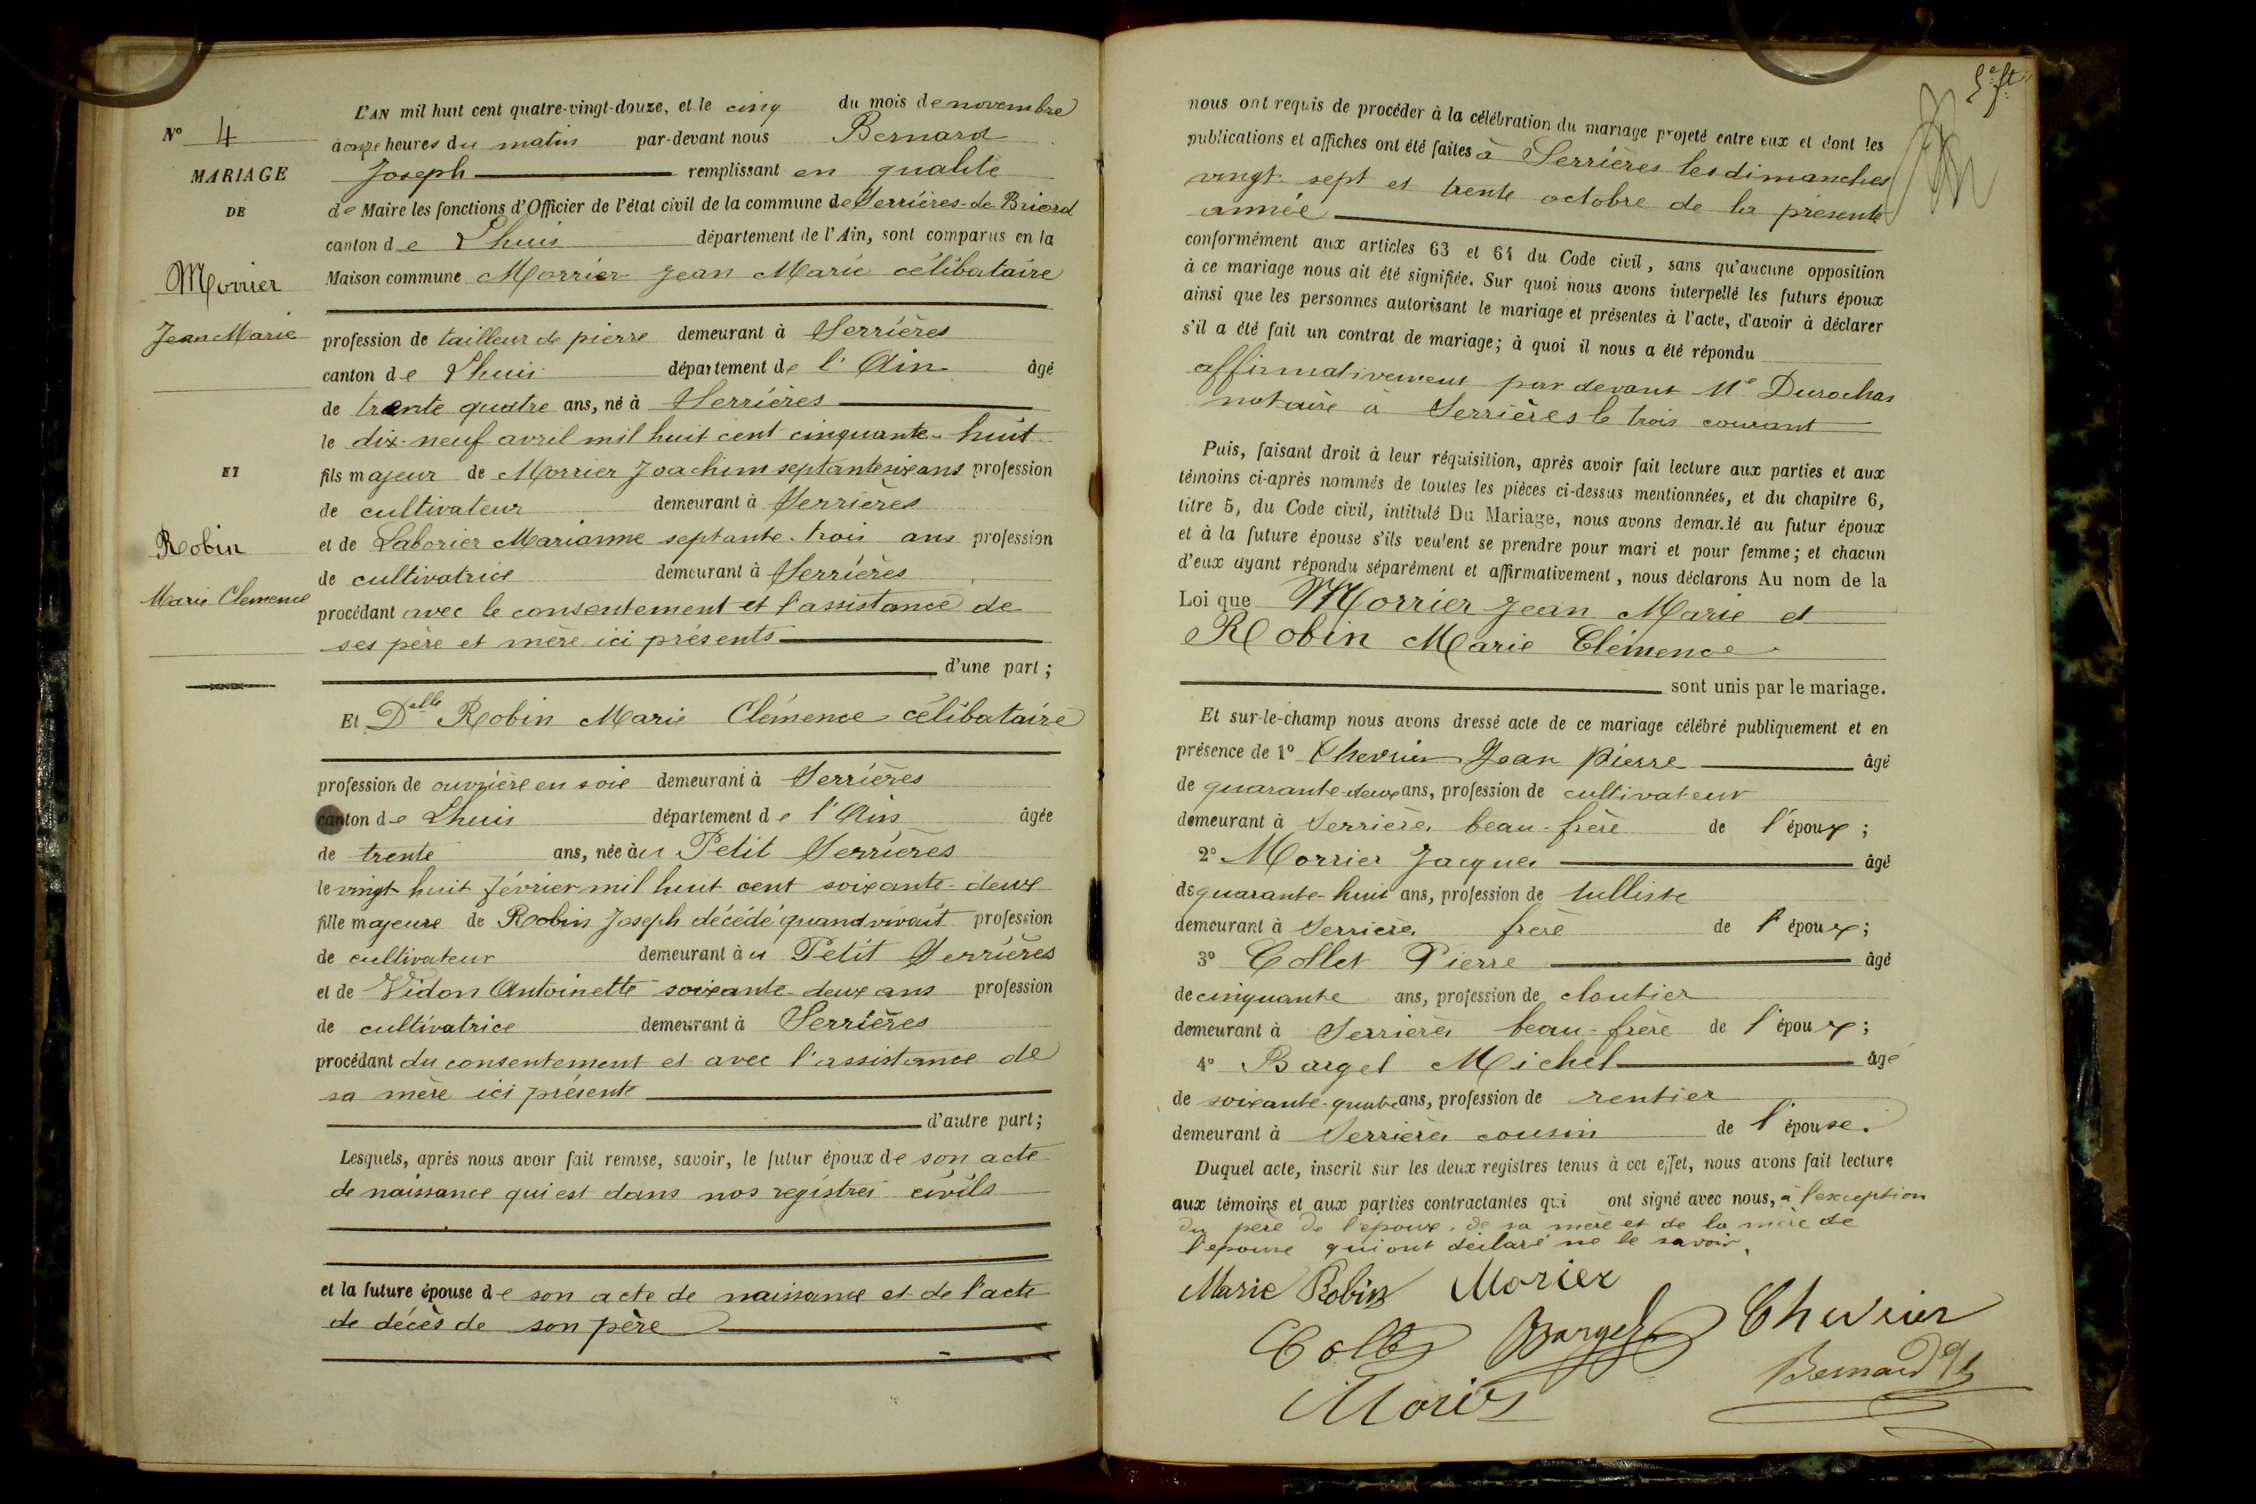 N° 4
MARIAGE
DE
Morrier
Jean Marie
ET
Robin
Marie Clemence
L'AN mil huit cent quatre-vingt-douze, et le cinq du mois de novembre
à onze heures du matin par-devant nous Bernard
Joseph remplissant en qualité
de Maire les fonctions d'Officier de l'état civil de la commune de Serrières-de Briord
canton de Lhuis département de l'Ain, sont comparus en la
Maison commune Morrier Jean Marie célibataire
profession de tailleur de pierre demeurant à Serrières
canton de Lhuis département de l'Ain âgé
de trente quatre ans, né à Serrières
le dix-neuf avril mil huit cent cinquante-huit
fils majeur de Morrier Joachim septante six ans profession
de cultivateur demeurant à Serrières
et de Laborier Marianne septante-trois ans profession
de cultivatrice demeurant à Serrières
procédant avec le consentement et l'assistance de
ses père et mère ici présents
d'une part ;
Et Delle Robin Marie Clémence célibataire
profession de ouvrière en soie demeurant à Serrières
canton de Lhuis département de l'Ain âgée
de trente ans, née àu Petit Serrières
le vingt-huit février mil huit cent soixante-deux
fille majeure de Robin Joseph décédé quand vivait profession
de cultivateur demeurant àu Petit Serrières
et de Vidon Antoinette soixante-deux ans profession
de cultivatrice demeurant à Serrières
procédant du consentement et avec l'assistance de
sa mère ici présente
d'autre part ;
Lesquels, après nous avoir fait remise, savoir, le futur époux de son acte
de naissance qui est dans nos registres civils
et la future épouse de son acte de naissance et de l'acte
de décès de son père
nous ont requis de procéder à la célébration du mariage projeté entre eux et dont les
publications et affiches ont été faites à Serrières les dimanches
vingt-sept et trente octobre de la présente
année
conformément aux articles 63 et 64 du Code civil, sans qu'aucune opposition
à ce mariage nous ait été signifiée. Sur quoi nous avons interpellé les futurs époux
ainsi que les personnes autorisant le mariage et présentes à l'acte, d'avoir à déclarer
s'il a été fait un contrat de mariage ; à quoi il nous a été répondu
affirmativement par devant Me Durochas
notaire à Serrières le trois courant
Puis, faisant droit à leur réquisition, après avoir fait lecture aux parties et aux
témoins ci-après nommés de toutes les pièces ci-dessus mentionnées, et du chapitre 6,
titre 5, du Code civil, intitulé Du Mariage, nous avons demandé au futur époux
et à la future épouse s'ils veulent se prendre pour mari et pour femme ; et chacun
d'eux ayant répondu séparément et affirmativement, nous déclarons Au nom de la
Loi que Morrier Jean Marie et
Robin Marie Clémence
sont unis par le mariage.
Et sur-le-champ nous avons dressé acte de ce mariage célébré publiquement et en
présence de 1° Chevrier Jean Pierre âgé
de quarante-deux ans, profession de cultivateur
demeurant à Serrières beau-frère de l'époux ;
2° Morrier Jacques âgé
de quarante-huit ans, profession de tulliste
demeurant à Serrières frère de l'époux ;
3° Collet Pierre âgé
de cinquante ans, profession de cloutier
demeurant à Serrières beau-frère de l'époux ;
4° Barget Michel âgé
de soixante-quatre ans, profession de rentier
demeurant à Serrières cousin de l'épouse.
Duquel acte, inscrit sur les deux registres tenus à cet effet, nous avons fait lecture
aux témoins et aux parties contractantes qui ont signé avec nous, à l'exception
du père de l'époux, de sa mère et de la mère de
l'épouse qui ont déclaré ne le savoir.
Marie Robin Morier
Collet Barget Chevrier
Bernard